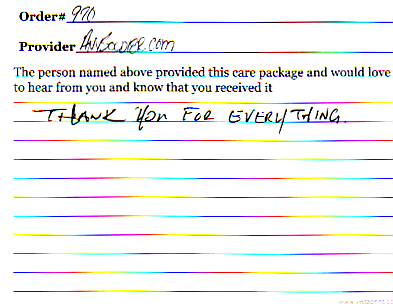 Order# 970
Provider AnySoldier.com
The person named above provided this care package and would love
to hear from you and know that you received it
THANK YOU FOR EVERYTHING.